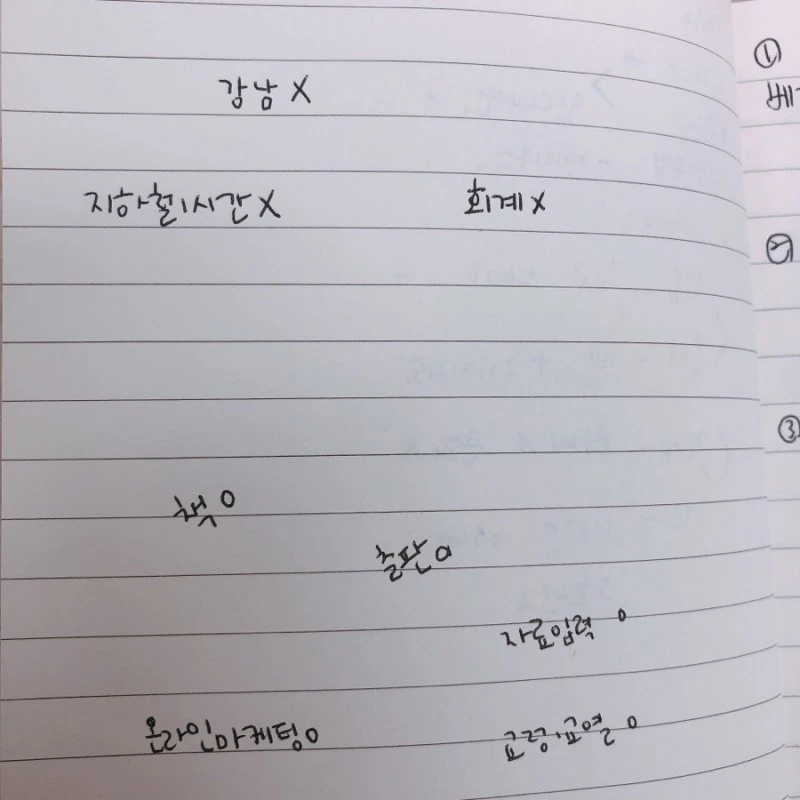 강남 X
①
쎄
지하철1시간 X
회계 X
②
③
책 O
출판 O
자료입력 O
온라인마케팅 O
교정,교열 O